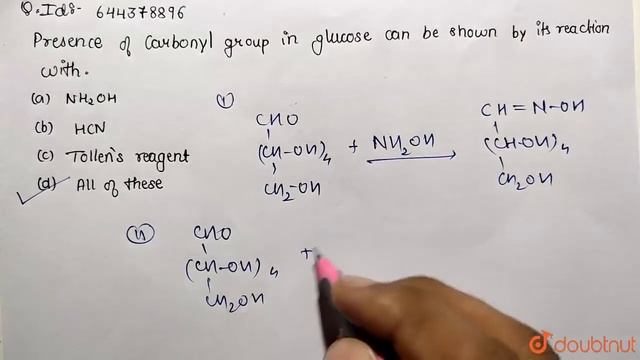 Q.Ids- 644378896
Presence of Carbonyl group in glucose can be shown by its reaction
with.
(a) NH2OH
(b) HCN
(c) Tollen's reagent
(d) All of these
(i)
CHO
(CH-OH)4 + NH2OH
CH2-OH
CH=N-OH
(CH-OH)4
CH2OH
(ii)
CHO
(CH-OH)4 +
CH2OH
doubtnut